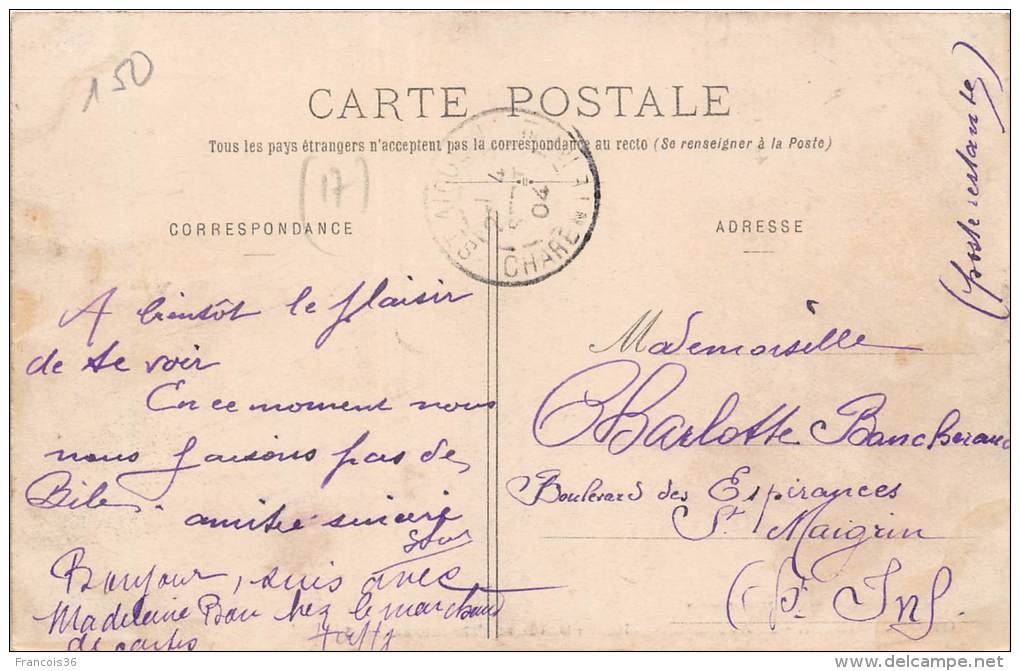 150
CARTE POSTALE
Tous les pays étrangers n'acceptent pas la correspondance au recto (Se renseigner à la Poste)
(17)
CORRESPONDANCE
A bientôt le plaisir
de te voir
En ce moment nous
nous faisons pas de
Bile. amitié sincère
Bonjour, suis avec
Madeleine Bon chez le marchand
de cartes
ST AIGULIN
4
SEPT
04
CHARENTE INF
ADRESSE
(poste restante)
Mademoiselle
Charlotte Bancheraud
Boulevard des Espérances
St Maigrin
(Ct Inf.
Francois36
delcampe.net